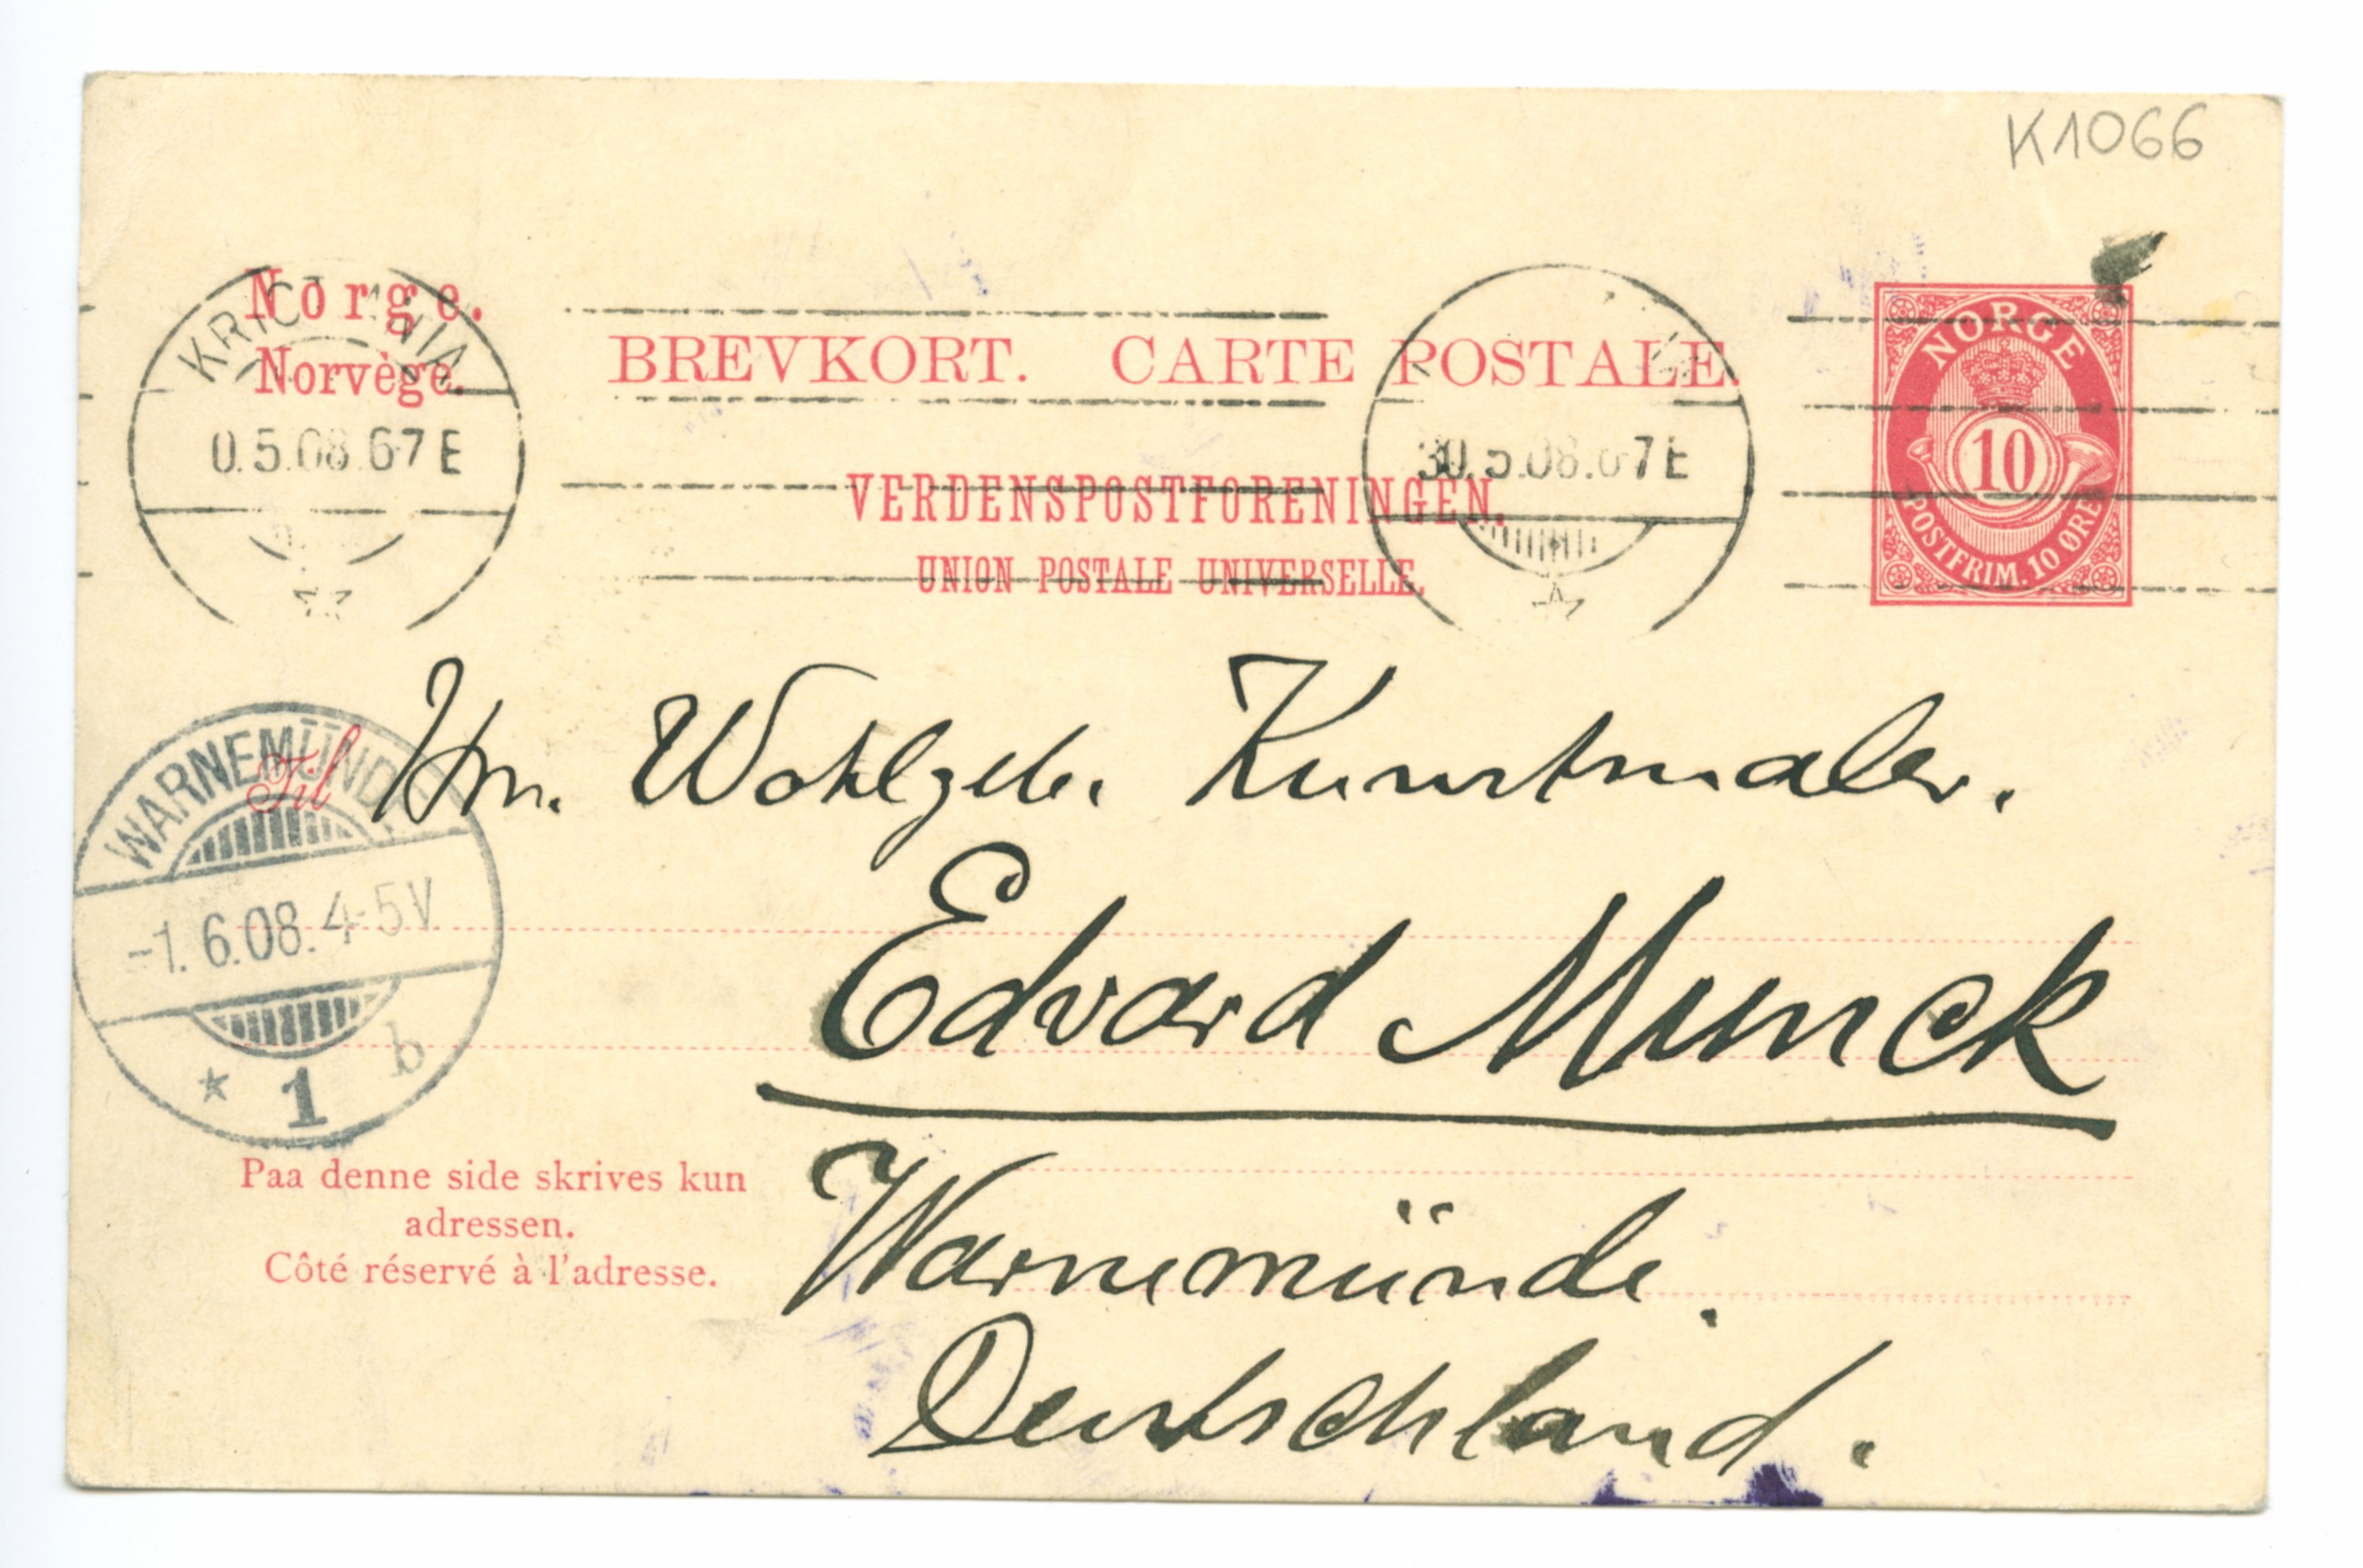 K1066
Norge.
Norvège.
BREVKORT. CARTE POSTALE.
VERDENSPOSTFORENINGEN.
UNION POSTALE UNIVERSELLE.
0.5.08 6-7 E
30.5.08.6-7 E
NORGE
10
POSTFRIM. 10 ØRE
WARNEMÜNDE
-1.6.08.4-5V.
* 1 b
Til Hrn. Wohlgeb. Kunstmaler.
Edvard Munck
Warnemünde.
Deutschland.
Paa denne side skrives kun
adressen.
Côté réservé à l'adresse.